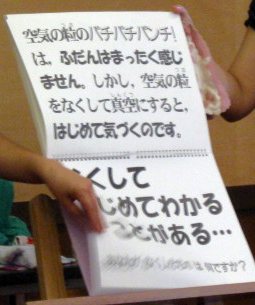 空気の粒のパチパチパンチ!
は、ふだんはまったく感じ
ません。しかし、空気の粒
をなくして真空にすると、
はじめて気づくのです。
なくして
じめてわかる
ことがある…
は何ですか?